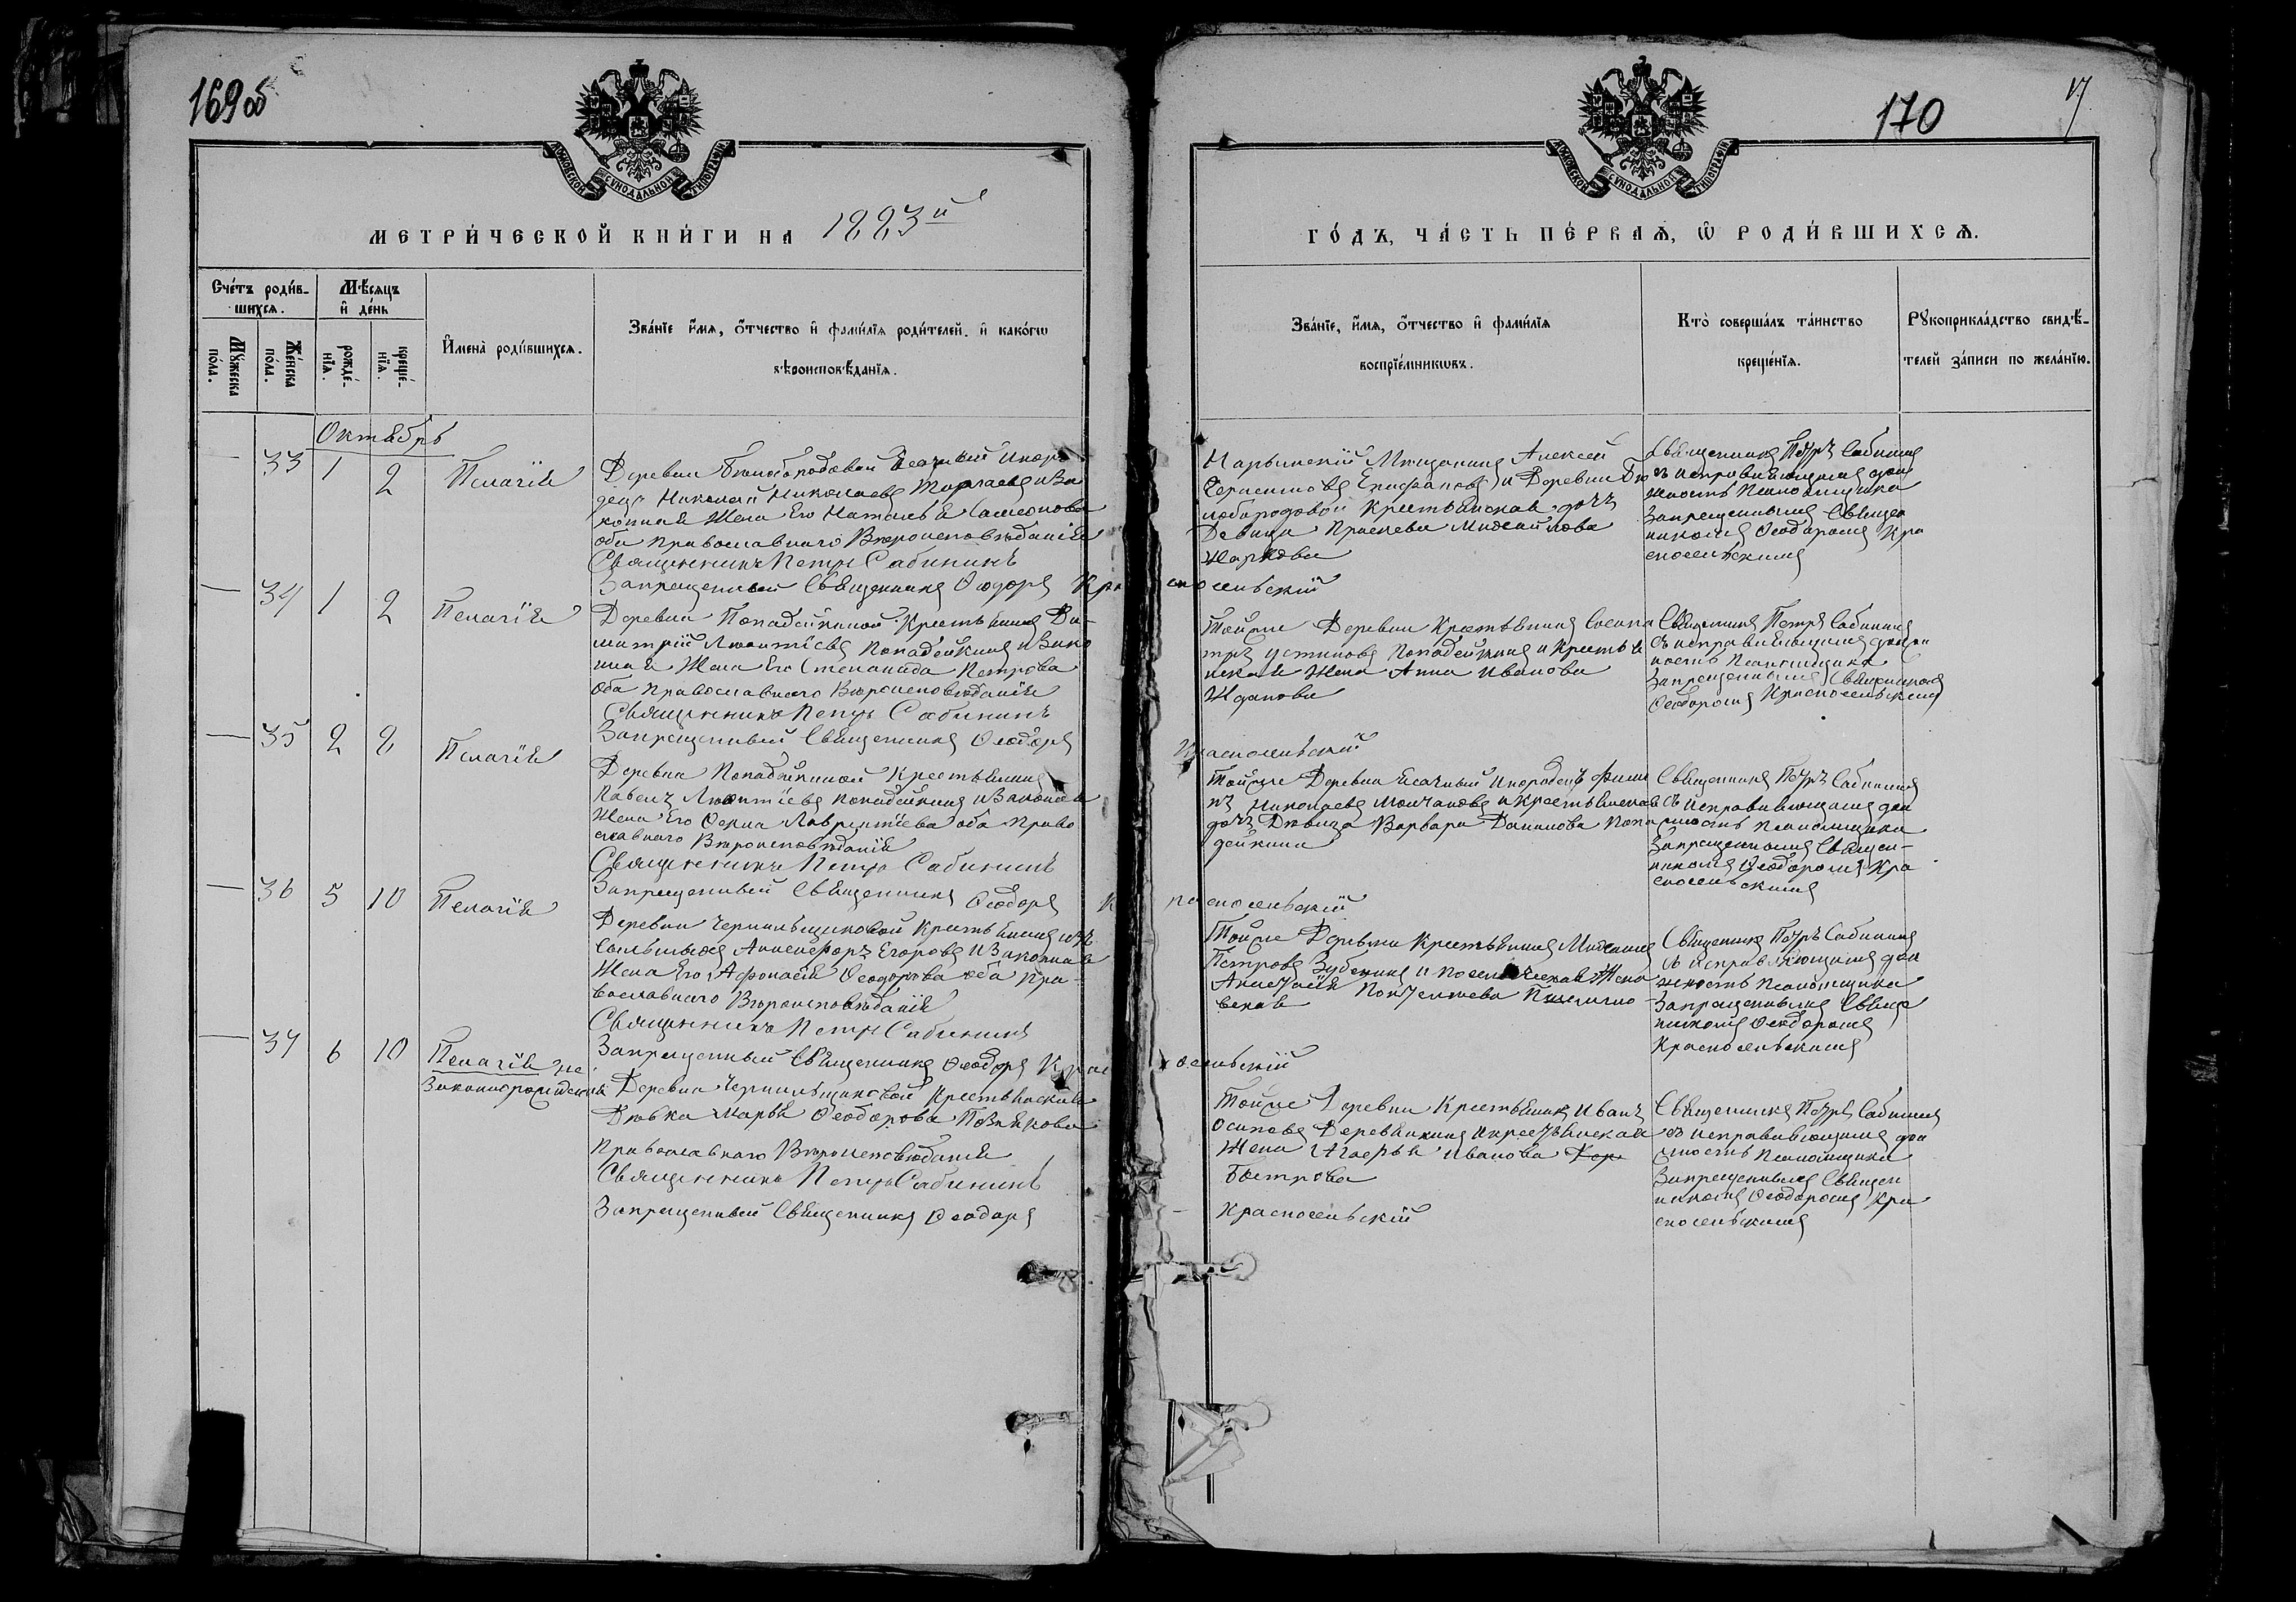 169об
МОСКОВСКОЙ СУНОДАЛЬНОЙ ТИПОГРАФІИ
МЕТРИ́ЧЕСКОЙ КНИ́ГИ НА 1883й
Сче́тъ роди́в-
шихсѧ.
Мѣ́сѧцъ
и҆ де́нь
Мꙋ́жеска
по́ла.
Же́нска
по́ла.
рожде́-
нїѧ.
креще́-
нїѧ.
И҆мена̀ роди́вшихсѧ.
Зва́нїе и҆́мѧ, ѻ҆́тчество и҆ фамѝлїѧ роди́телей. и҆ како́гѡ
вѣроисповѣ́данїѧ.
Октябрь
— 33 1 2 Пелагія
Деревни Бѣлобородовой Ясачный Иноро
децъ Николай Николаевъ и За
конная Жена Его Наталья Самсонова
оба Православнаго Вѣроисповѣданія
Священникъ Петръ Сабининъ
Запрещенный Священникъ Ѳеодоръ Кра
— 34 1 2 Пелагія
Деревни Попадейкиной Крестьянинъ Ди-
митрій Леонтіевъ Попадейкинъ и Зако
нная Жена Его Степанида Петрова
оба Православнаго Вѣроисповѣданія
Священникъ Петръ Сабининъ
Запрещенный Священникъ Ѳеодоръ
— 35 2 2 Пелагія
Деревни Попадейкиной Крестьянинъ
Павелъ Леонтіевъ Попадейкинъ и Законная
Жена Его Ѳекла Лаврентіева оба Право
славнаго Вѣроисповѣданія
Священникъ Петръ Сабининъ
Запрещенный Священникъ Ѳеодоръ К
— 36 5 10 Пелагія
Деревни Чернильщиковой Крестьянинъ изъ
Ссыльныхъ Егоровъ и Законная
Жена Его Афонасія Ѳеодорова оба Пра-
вославнаго Вѣроисповѣданія
Священникъ Петръ Сабининъ
Запрещенный Священникъ Ѳеодоръ Крас
— 37 6 10 Пелагія не-
законнорожденная
Деревни Чернильщиковой Крестьянская
Дѣвка Марья Ѳеодорова Познякова
Православнаго Вѣроисповѣданія
Священникъ Петръ Сабининъ
Запрещенный Священникъ Ѳеодоръ
170
17
МОСКОВСКОЙ СУНОДАЛЬНОЙ ТИПОГРАФІИ
ГО́ДЪ, ЧА́СТЬ ПЕ́РВАѦ, Ѡ҆ РОДИ́ВШИХСѦ.
Зва́нїе, и҆́мѧ, ѻ҆́тчество и҆ фамѝлїѧ
воспрїе́мникѡвъ.
Кто̀ соверша́лъ та́инство
креще́нїѧ.
Рꙋкоприкла́дство свидѣ́-
телей за́писи по жела́нїю.
Нарымскій Мѣщанинъ Алексей
Епифановъ и Деревни Бѣ
лобородовой Крестьянская дочь
Дѣвица Прасковья Михайлова
Жаркова
сносельскій
Священникъ Петръ Сабининъ
съ исправляющимъ дол
жность Псаломщика
Запрещеннымъ Священ
никомъ Ѳеодоромъ Кра
сносельскимъ
Тойже Деревни Крестьянинъ Сосипа
тръ Устиновъ Попадейкинъ и Крестья
нская Жена Анна Иванова
Жданова
Красносельскій
Священникъ Петръ Сабининъ
съ исправляющимъ долж
ность Псаломщика
Запрещеннымъ Священникомъ
Ѳеодоромъ Красносельскимъ
Тойже Деревни Ясачный Инородецъ Фили
пъ Николаевъ Молчановъ и Крестьянская
дочь Дѣвица Варвара Данилова Попа
дейкина
расносельскій
Священникъ Петръ Сабининъ
съ исправляющимъ дол
жность Псаломщика
Запрещеннымъ Священ-
никомъ Ѳеодоромъ Кра
сносельскимъ
Тойже Деревни Крестьянинъ Михаилъ
Петровъ Зубекинъ и Поселенческая Жена
Анастасія
носельскій
Священникъ Петръ Сабининъ
съ исправляющимъ дол
жность Псаломщика
Запрещеннымъ Свяще
нникомъ Ѳеодоромъ
Красносельскимъ
Тойже Деревни Крестьянинъ Иванъ
Осиповъ Деревянкинъ и Крестьянская
Жена Агаѳья Иванова
Быстрова
Красносельскій
Священникъ Петръ Сабининъ
съ исправляющимъ дол
жность Псаломщика
Запрещеннымъ Священ
никомъ Ѳеодоромъ Кра
сносельскимъ